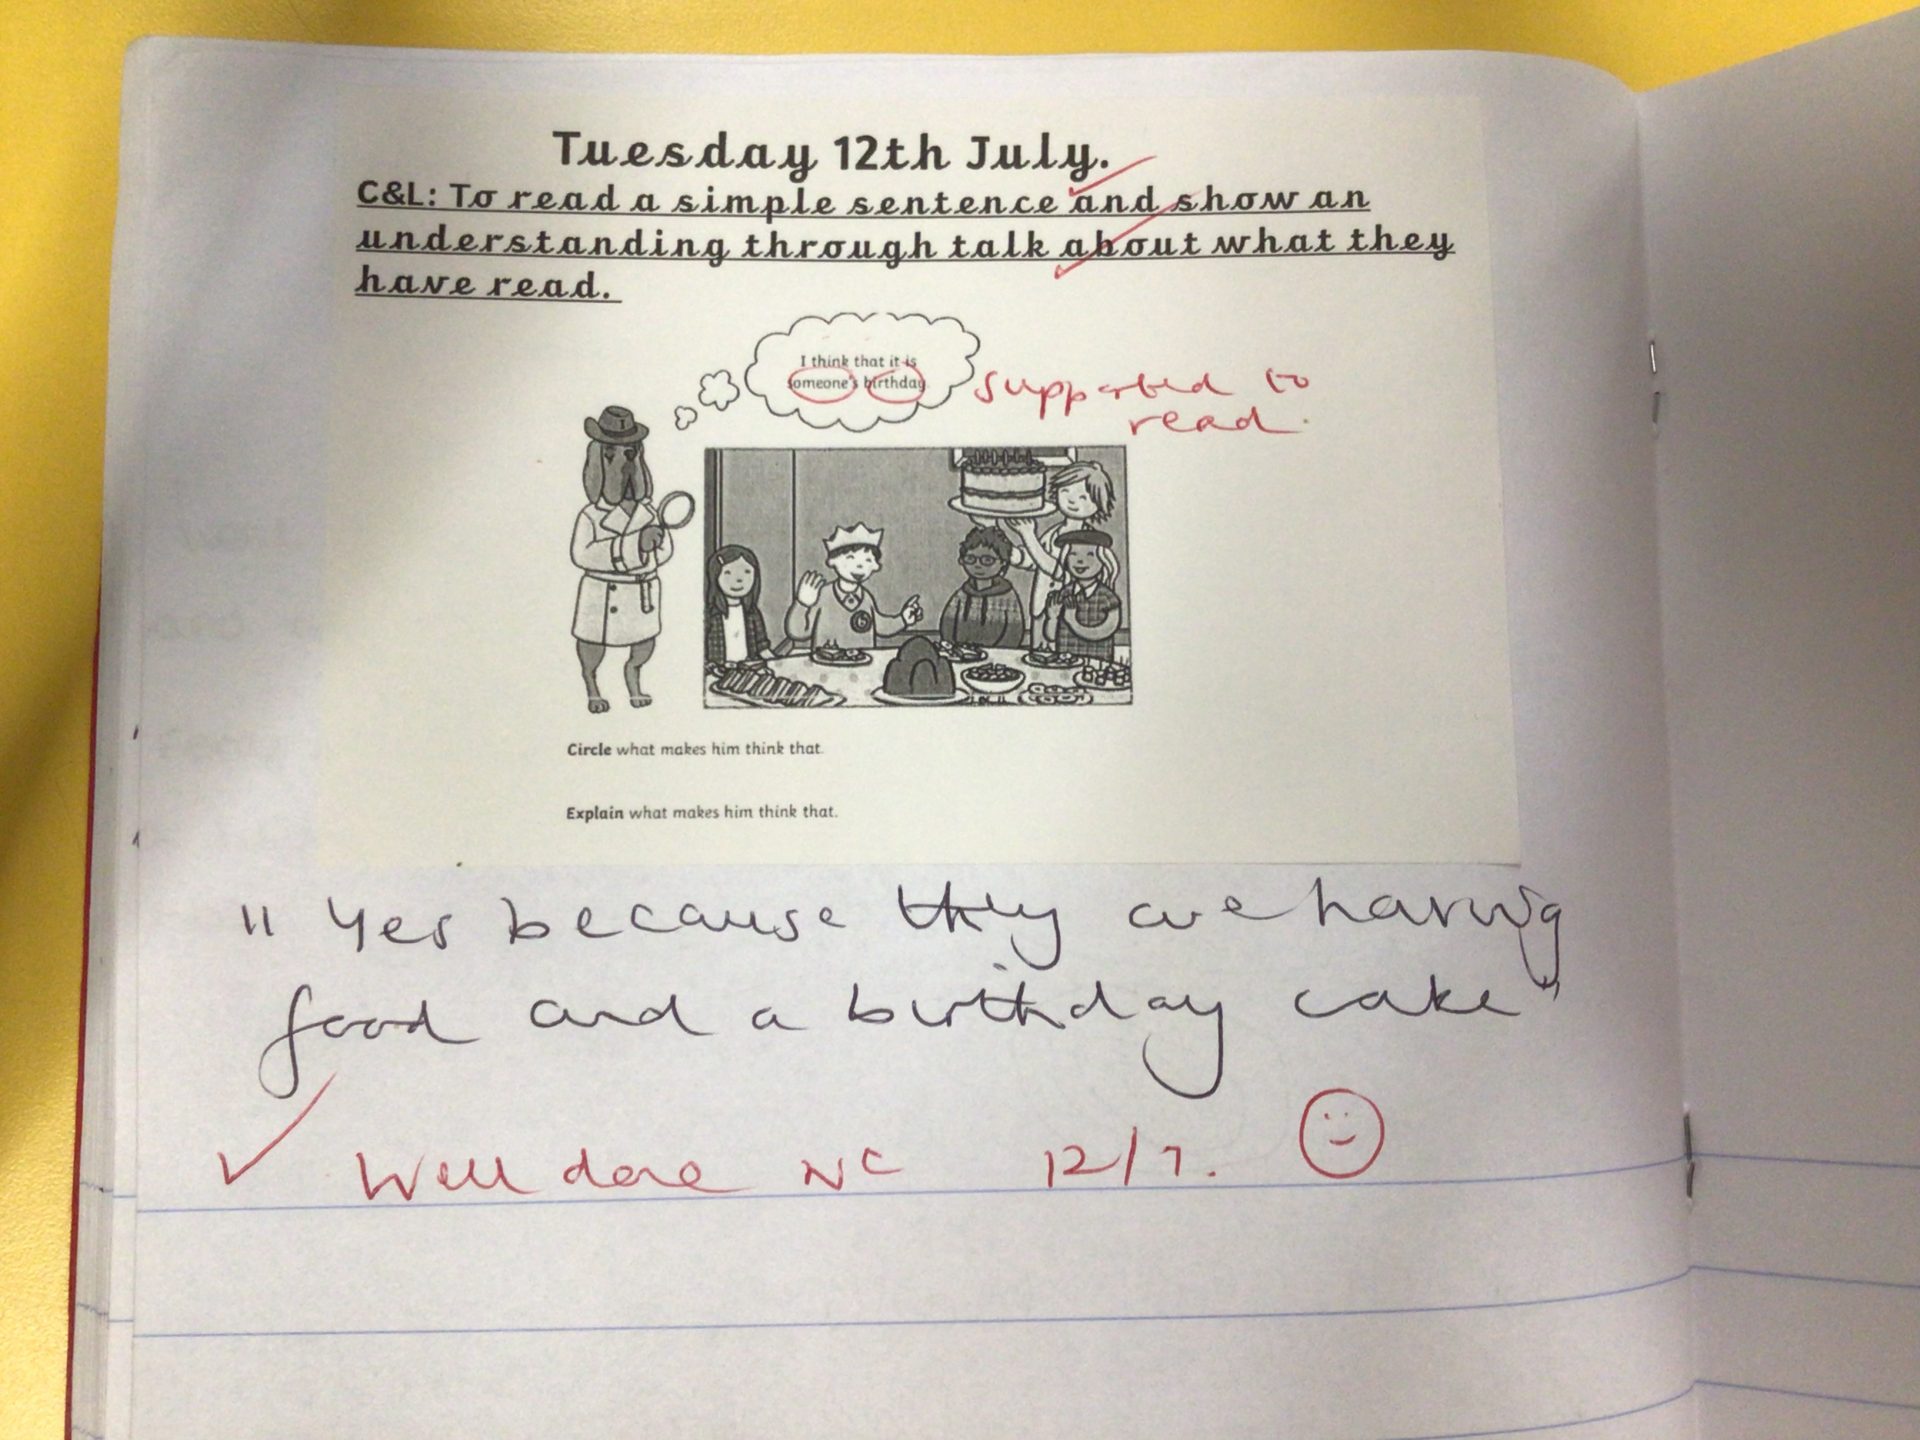 Tuesday 12th July.
C&L: To read a simple sentence and show an
understanding through talk about what they
have read.
I think that it is
someone's birthday
supported to
read.
Circle what makes him think that.
Explain what makes him think that.
"Yes because they are having
food and a birthday cake"
Well done NC 12/7.